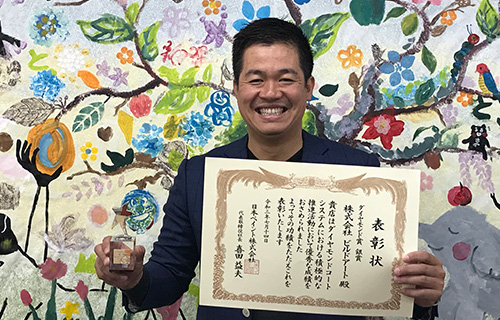 表彰状
ダイヤモンド賞 銀賞
株式会社 ビルドアート 殿
貴店はダイヤモンドコート
システムにおける積極的な
推進活動において優秀な成績を
おさめられました
よってその功績をたたえこれを
表彰いたします
令和二年七月十四日
日本ペイント株式会社
代表取締役社長 喜田益夫